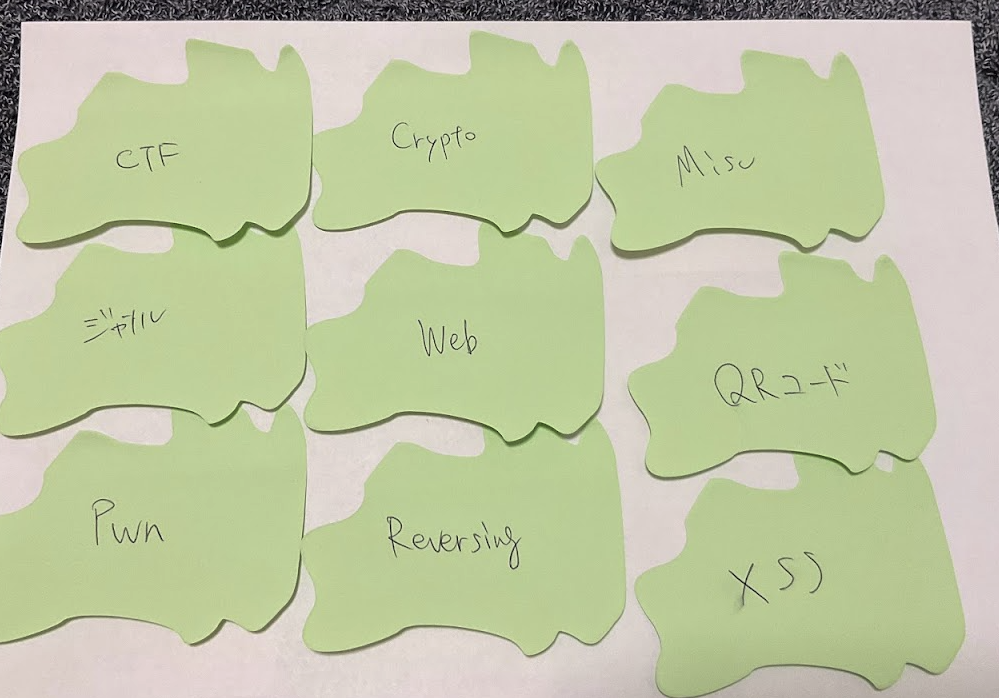 CTF
Crypto
Misc
ジャンル
Web
QRコード
Pwn
Reversing
XSS